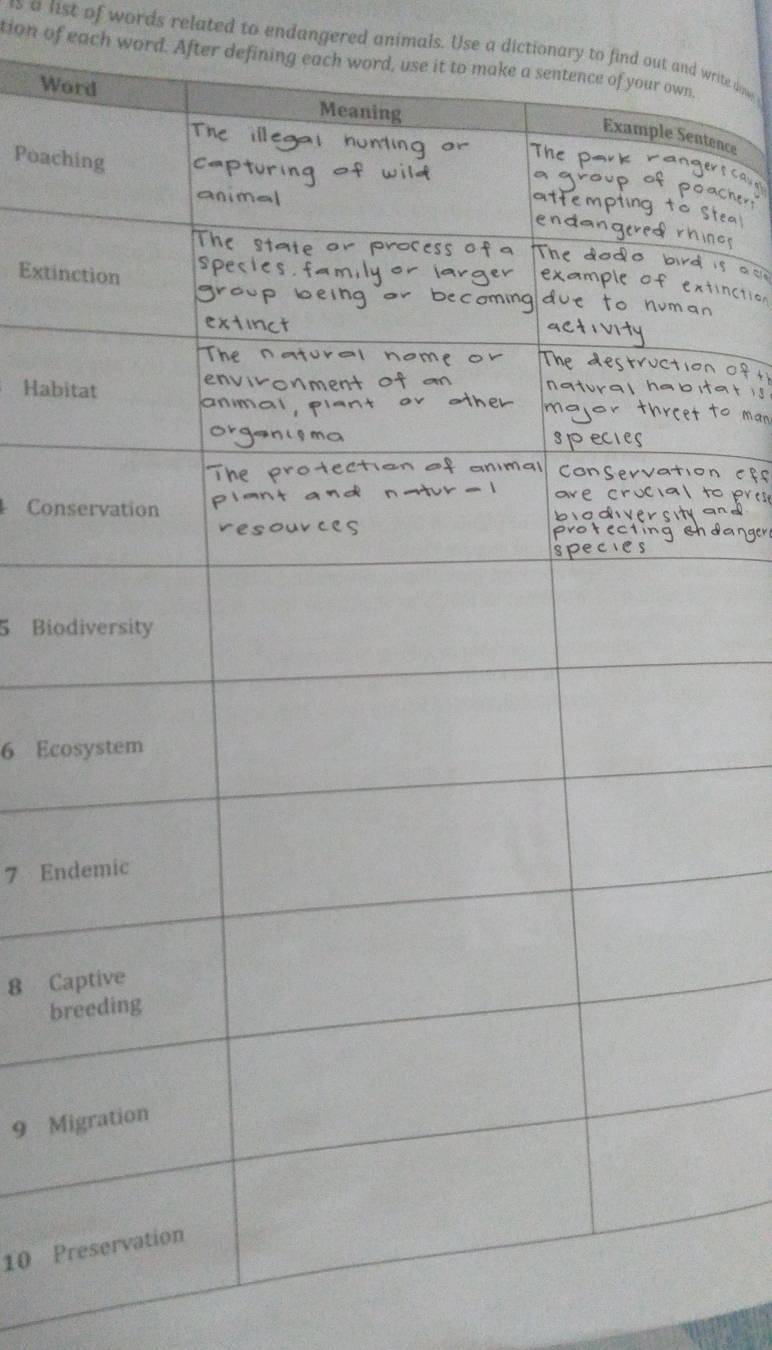 is a list of words related to endangered animals. Use a dictionary to find out and write down
tion of each word. After defining each word, use it to make a sentence of your own.
Word
Meaning
Example Sentence
Poaching
The illegal hunting or
capturing of wild
animal
The park rangers caugh
a group of poachers
attempting to steal
endangered rhinos
Extinction
The state or process of a
species. family or larger
group being or becoming
extinct
The dodo bird is a
example of extinction
due to human
activity
Habitat
The natural home or
environment of an
animal, plant or other
organisma
The destruction of th
natural habitat is
major threet to man
species
4 Conservation
The protection of animal
plant and natural
resources
conservation eff
are crucial to prese
biodiversity and
protecting endangere
species
5 Biodiversity
6 Ecosystem
7 Endemic
8 Captive
breeding
9 Migration
10 Preservation